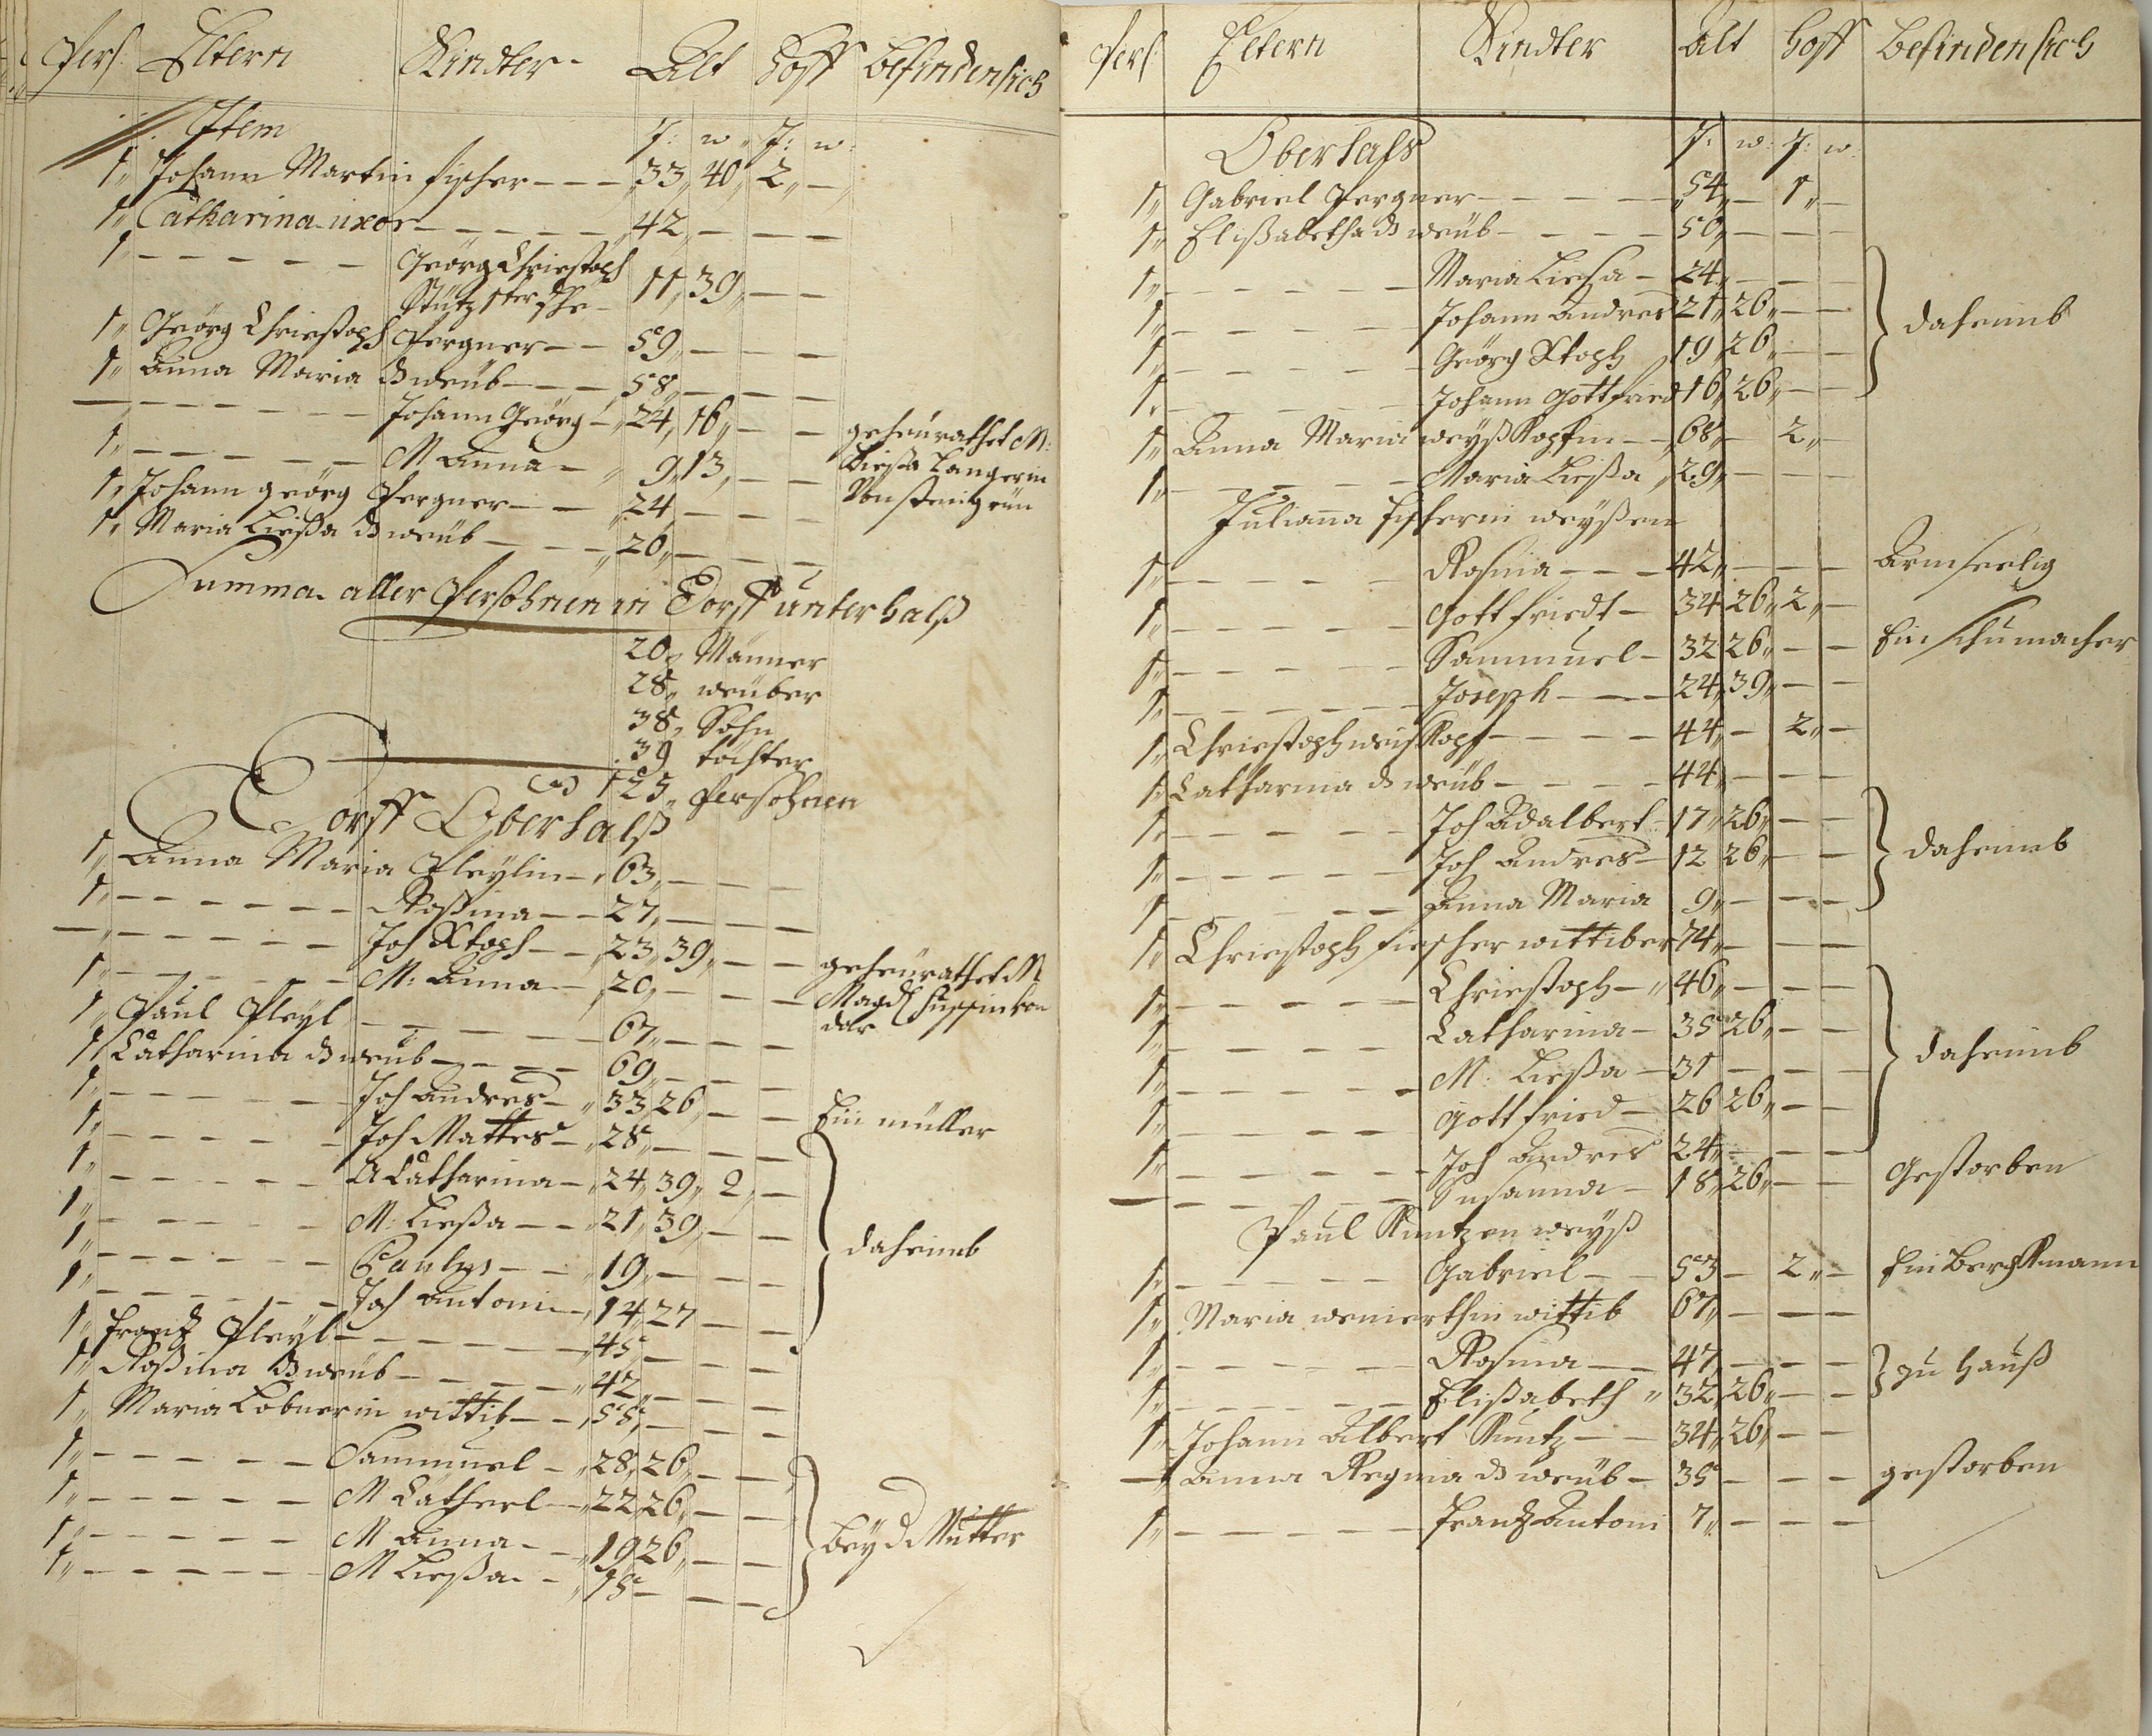 Pers: Eltern Kindter Alt Hoff befinden sich
Item J: w J: w
1 Johann Martin fischer 33 40 2
1 Catharina uxor 42
1 Geörg Christoph
Stütz 1ter Ehe 11 39
1 Geörg Christoph Pergner 59
1 Anna Maria d weüb 58
Johann Geörg 24 16 geheürathet M:
1 M Anna 9 13 Liessa Langerin
1 Johann geörg Pergner 24
1 Maria Liessa d weüb 20
Summa aller Persohnen in Dorff unter halß
20 Männer
28 weüber
38 Söhn
39 töchter
125 Persohnen
Dorff Oberhalß
1 Anna Maria Pleylin 63
1 Rossina 27
Joh Xtoph 23 39 geheürathet M
1 M: Anna 20 Magd
1 Paul Pleyl 67
1 Catharina d weüb 69
1 Joh Andres 33 26 Ein müller
1 Joh Mattes 28
1 A Catharina 24 39 2
1 M: Liessa 21 39 daheimb
1 Paulus 19
1 Joh Antoni 14 27
1 Frantz Pleyl 45
1 Rossina d weüb 42
1 Maria Lobnerin wittib 55
1 Sammuel 28 26
1 M Catherl 22 26
1 M Anna 19 26 bey d Mutter
1 M Liessa 15
Pers: Eltern Kindter Alt hoff befinden sich
Oberhalß J: w: J: w:
1 Gabriel Pergner 54 1
1 Elissabetha d weüb 50
1 Maria Liesa 24
1 Johann Andres 21 26 daheimb
1 Geörg Xtoph 19 26
1 Johann Gottfried 16 26
1 Anna Maria weyßkopfin 68 2
1 Maria Liessa 29
Julianna fischerin weyßen
1 Rosina 42 Armseelig
1 Gottfriedt 34 26 2
1 Sammuel 32 26 Ein schumacher
1 Joseph 24 39
1 Christoph weißkopf 44 2
1 Catharina d weüb 44
1 Joh Adalbert 17 26
1 Joh Andres 12 26 daheimb
1 Anna Maria 9
1 Christoph fischer wittiber 74
1 Christoph 46
1 Catharina 35 26
1 M: Liessa 31 daheimb
1 Gottfried 26 26
1 Joh Andres 24
Susanna 18 26 Gestorben
Paul Kuntzen weyß
1 Gabriel 53 2 Ein Berckmann
1 Maria wenierthin wittib 67
1 Rosina 47 zu Hauß
1 Elissabeth 32 26
1 Johann Albert Kuntz 34 26
Anna Regina d weüb 35 gestorben
1 Frantz Antoni 7